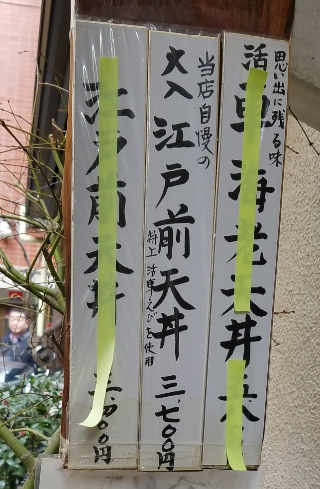 思い出に残る味
活車海老天丼
当店自慢の
大入江戸前天丼
特上活車えびを使用
三、七〇〇円
江戸前天丼
〇〇円